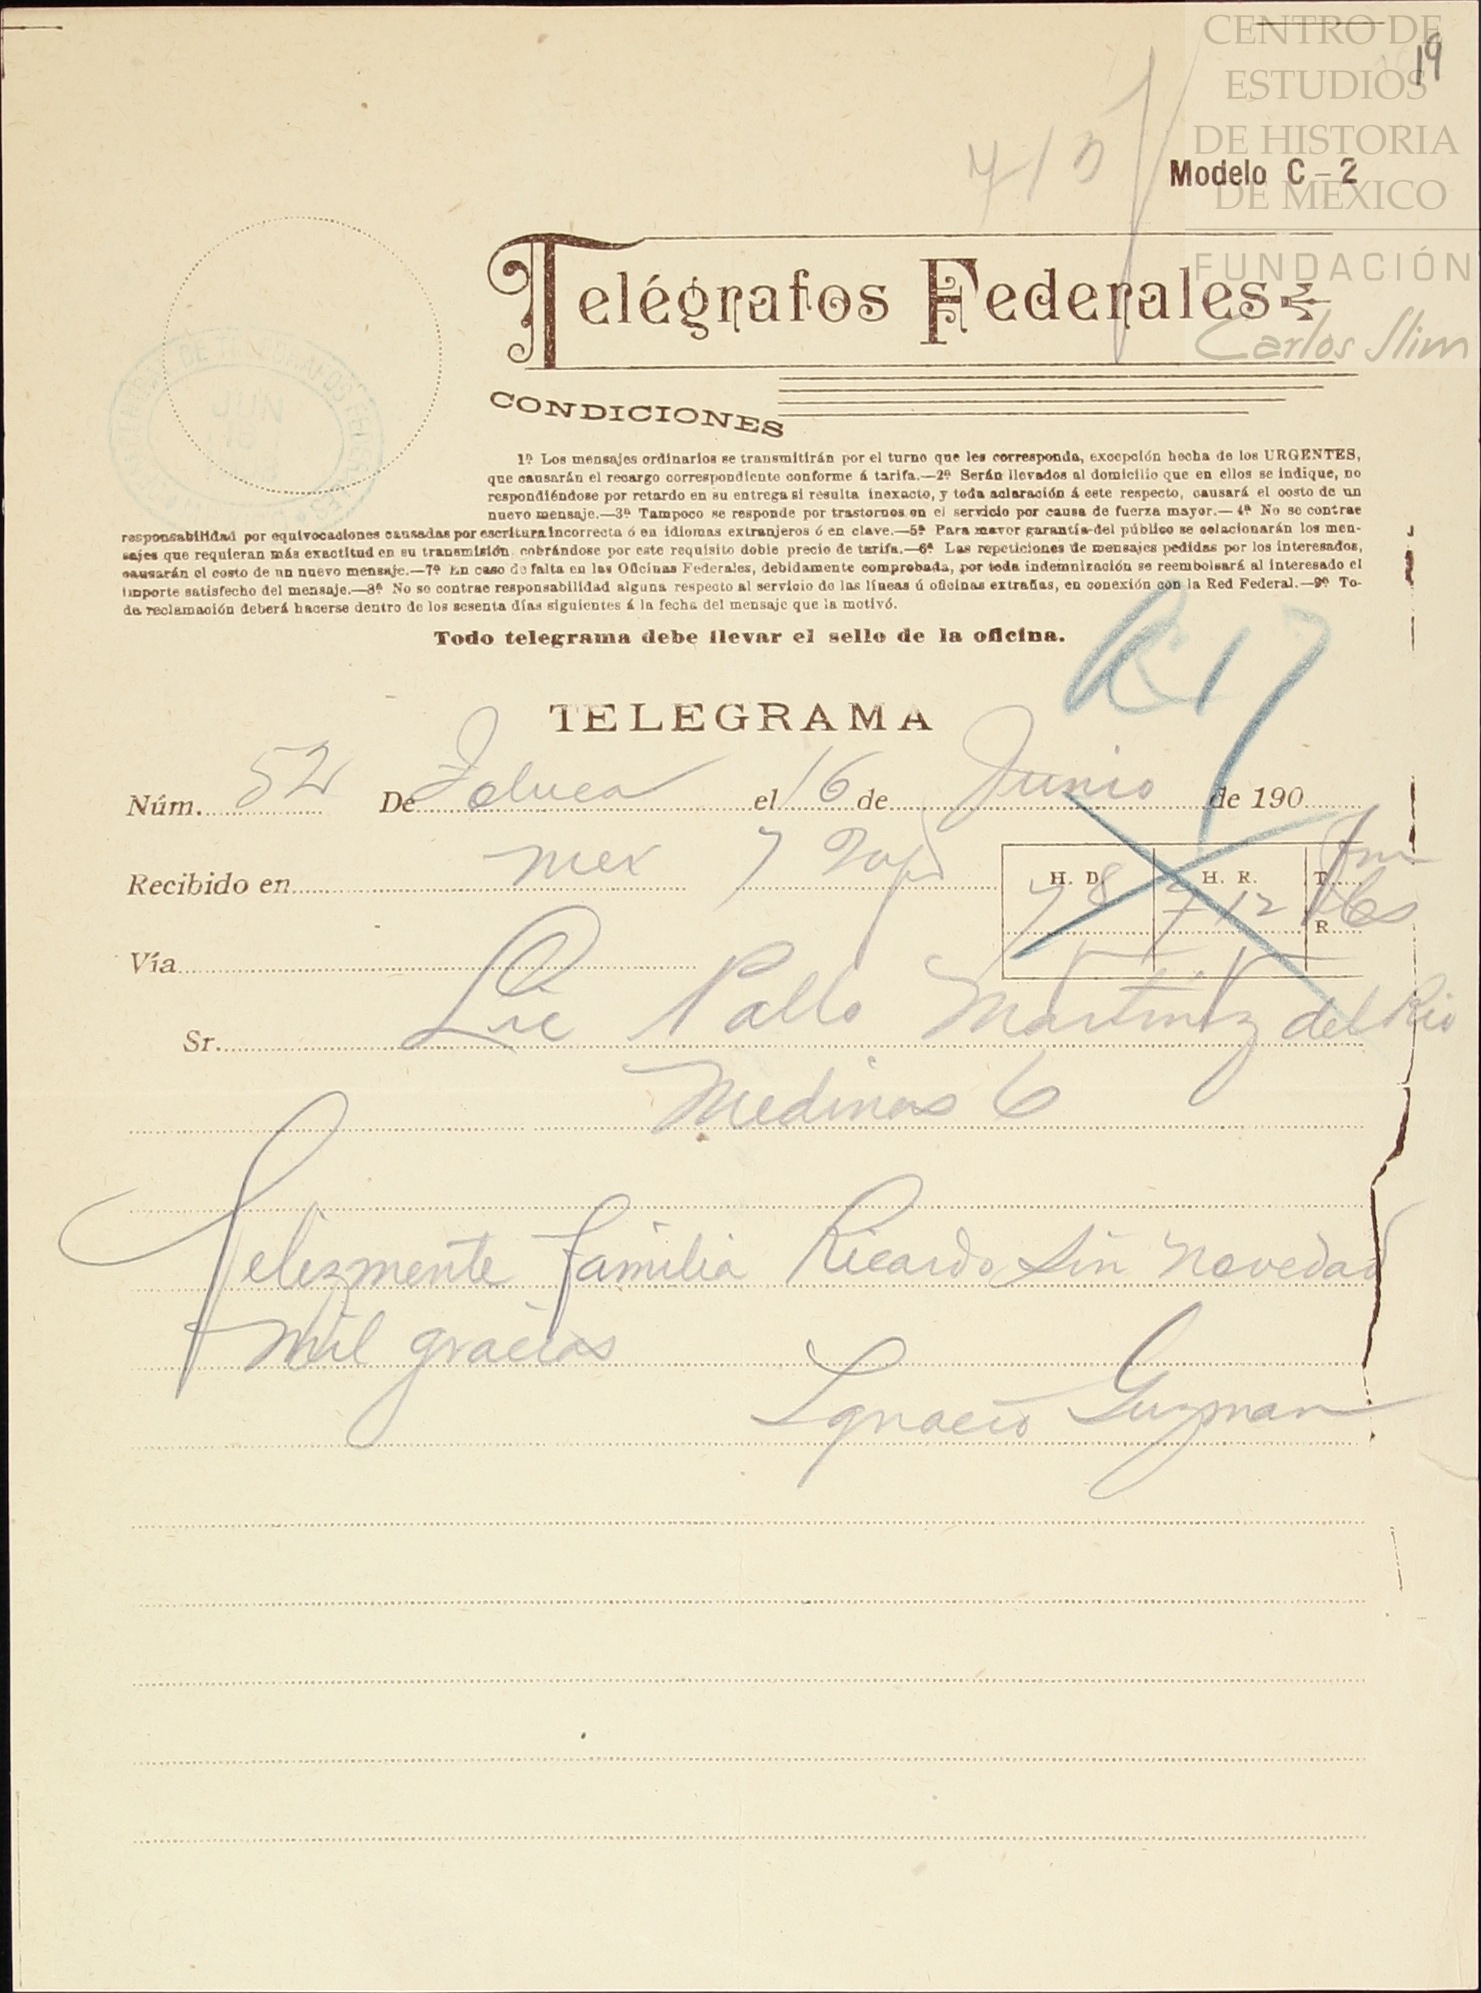 CENTRO DE
ESTUDIOS
DE HISTORIA
DE MÉXICO
FUNDACIÓN
Carlos Slim
19
Modelo C-2
Telégrafos Federales
CONDICIONES
JUN
16
1ª Los mensajes ordinarios se transmitirán por el turno que les corresponda, excepción hecha de los URGENTES,
que causarán el recargo correspondiente conforme á tarifa.—2ª Serán llevados al domicilio que en ellos se indique, no
respondiéndose por retardo en su entrega si resulta inexacto, y toda aclaración á este respecto, causará el costo de un
nuevo mensaje.—3ª Tampoco se responde por trastornos en el servicio por causa de fuerza mayor.—4ª No se contrae
responsabilidad por equivocaciones causadas por escritura incorrecta ó en idiomas extranjeros ó en clave.—5ª Para mayor garantía del público se colacionarán los men-
sajes que requieran más exactitud en su transmisión cobrándose por este requisito doble precio de tarifa.—6ª Las repeticiones de mensajes pedidas por los interesados,
causarán el costo de un nuevo mensaje.—7ª En caso de falta en las Oficinas Federales, debidamente comprobada, por toda indemnización se reembolsará al interesado el
importe satisfecho del mensaje.—8ª No se contrae responsabilidad alguna respecto al servicio de las líneas ú oficinas extrañas, en conexión con la Red Federal.—9ª To-
da reclamación deberá hacerse dentro de los sesenta días siguientes á la fecha del mensaje que la motivó.
Todo telegrama debe llevar el sello de la oficina.
R 17
TELEGRAMA
Núm. 52 De Toluca el 16 de Junio de 190
Recibido en Mex 7
H. D. H. R. T.
7 8 7 12 R
Vía
Sr. Lic Pablo Martinez del Rio
Medinas 6
Felizmente familia Ricardo sin novedad
mil gracias
Ignacio Guzman